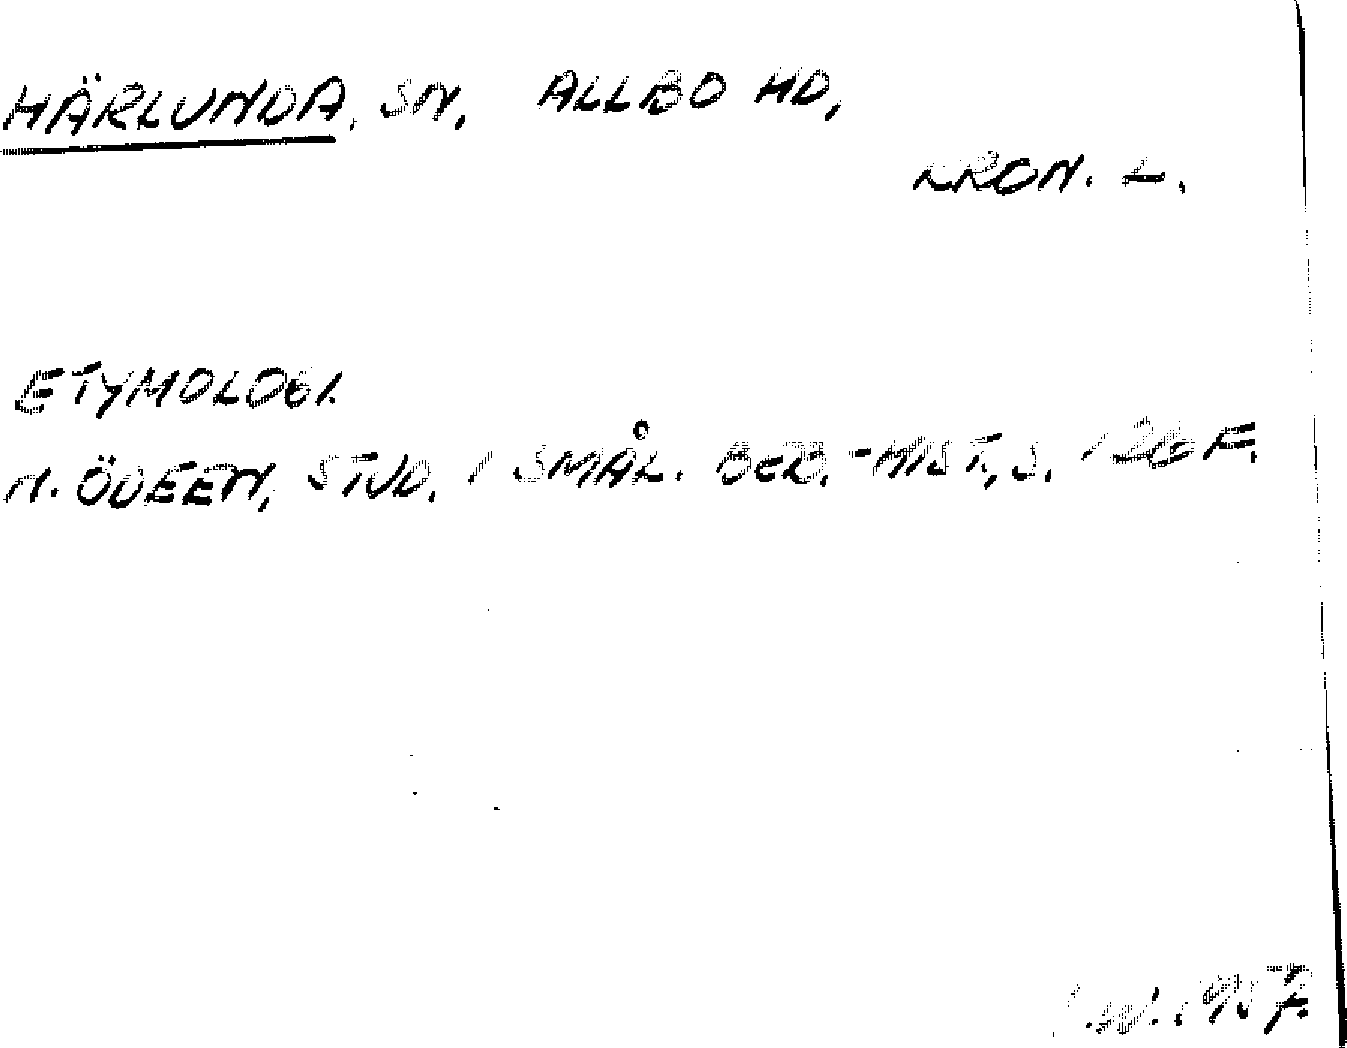 HÄRLUNDA, SN, ALLBO HD,
KRON. L.
ETYMOLOGI.
N. ÖDEEN, STUD. I SMÅL. BEB.-HIST, S. 126 F.
1957